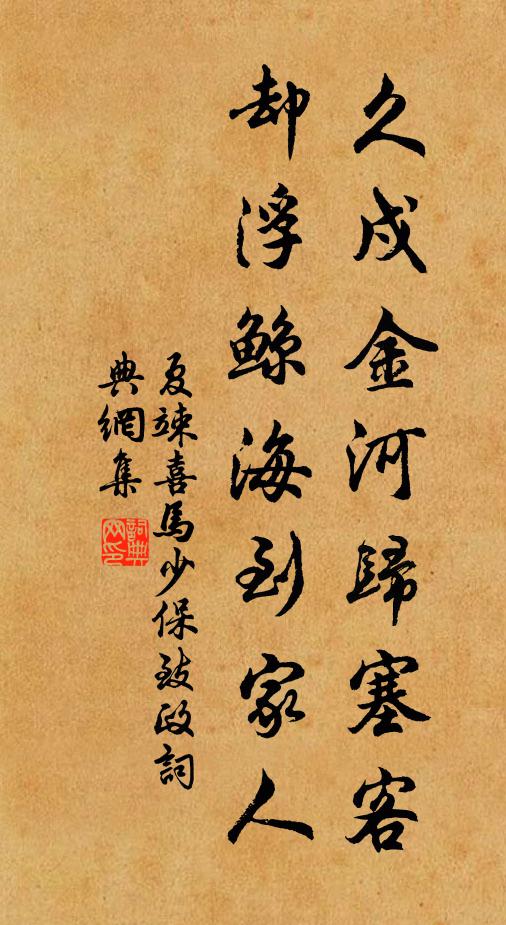 久戍金河歸塞客
却浮鯨海到家人
夏竦喜馬少保致政詞
典網集
詞典網印